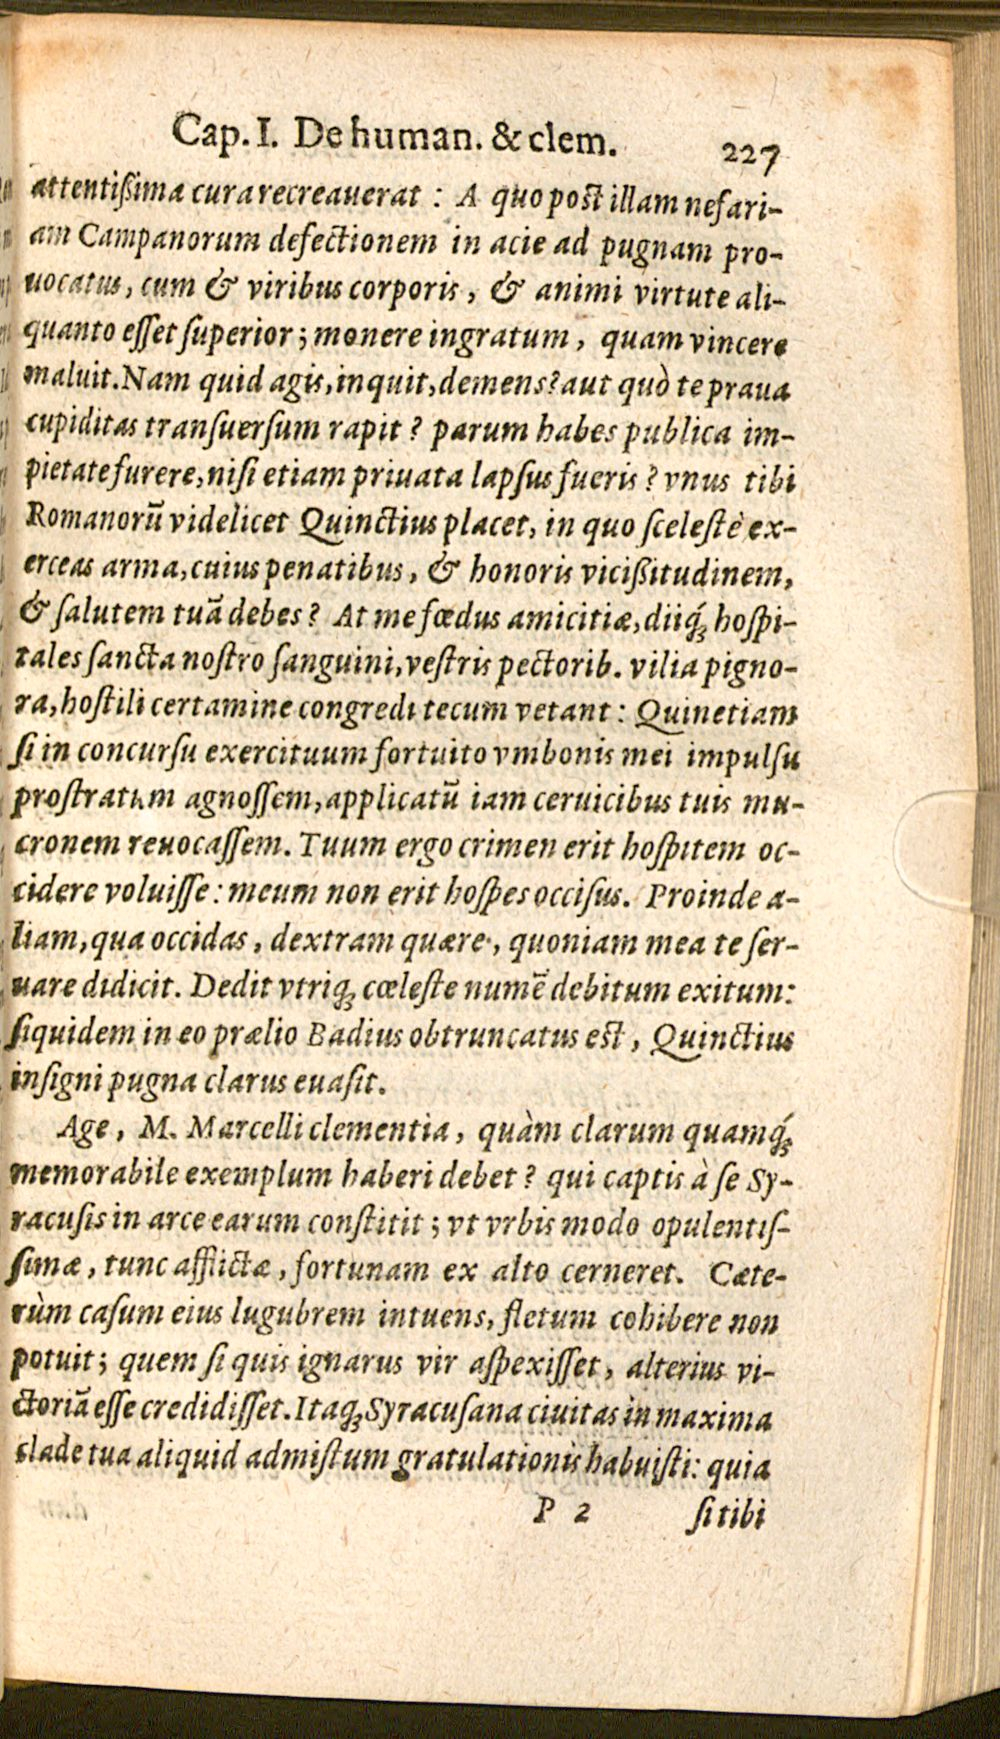 Cap. I. De human. & clem. 227
attentißima cura recreauerat : A quo post illam nefari-
am Campanorum defectionem in acie ad pugnam pro-
uocatus, cum & viribus corporis, & animi virtute ali-
quanto eſſet ſuperior ; monere ingratum, quam vincere
maluit. Nam quid agis, inquit, demens? aut quò te praua
cupiditas tranſuerſum rapit ? parum habes publica im-
pietate furere, niſi etiam priuata lapſus fueris ? vnus tibi
Romanorū videlicet Quinctius placet, in quo ſceleſtè ex-
erceas arma, cuius penatibus, & honoris vicißitudinem,
& ſalutem tuā debes ? At me fœdus amicitiæ, diiq́ꝫ hoſpi-
tales ſancta noſtro ſanguini, veſtris pectorib. vilia pigno-
ra, hoſtili certamine congredi tecum vetant : Quinetiam
ſi in concurſu exercituum fortuito vmbonis mei impulſu
proſtratum agnoſſem, applicatū iam ceruicibus tuis mu-
cronem reuocaſſem. Tuum ergo crimen erit hoſpitem oc-
cidere voluiſſe : meum non erit hoſpes occiſus. Proinde a-
liam, qua occidas, dextram quære, quoniam mea te ſer-
uare didicit. Dedit vtriqꝫ cœleſte numē debitum exitum:
ſiquidem in eo prælio Badius obtruncatus est, Quinctius
inſigni pugna clarus euaſit.
Age, M. Marcelli clementia, quàm clarum quamq́ꝫ
memorabile exemplum haberi debet ? qui captis à ſe Sy-
racuſis in arce earum conſtitit ; vt vrbis modo opulentiſ-
ſimæ, tunc afflictæ, fortunam ex alto cerneret. Cæte-
rùm caſum eius lugubrem intuens, fletum cohibere non
potuit; quem ſi quis ignarus vir aſpexiſſet, alterius vi-
ctoriā eſſe credidiſſet. Itaqꝫ Syracuſana ciuitas in maxima
clade tua aliquid admiſtum gratulationis habuiſti: quia
P 2 ſi tibi